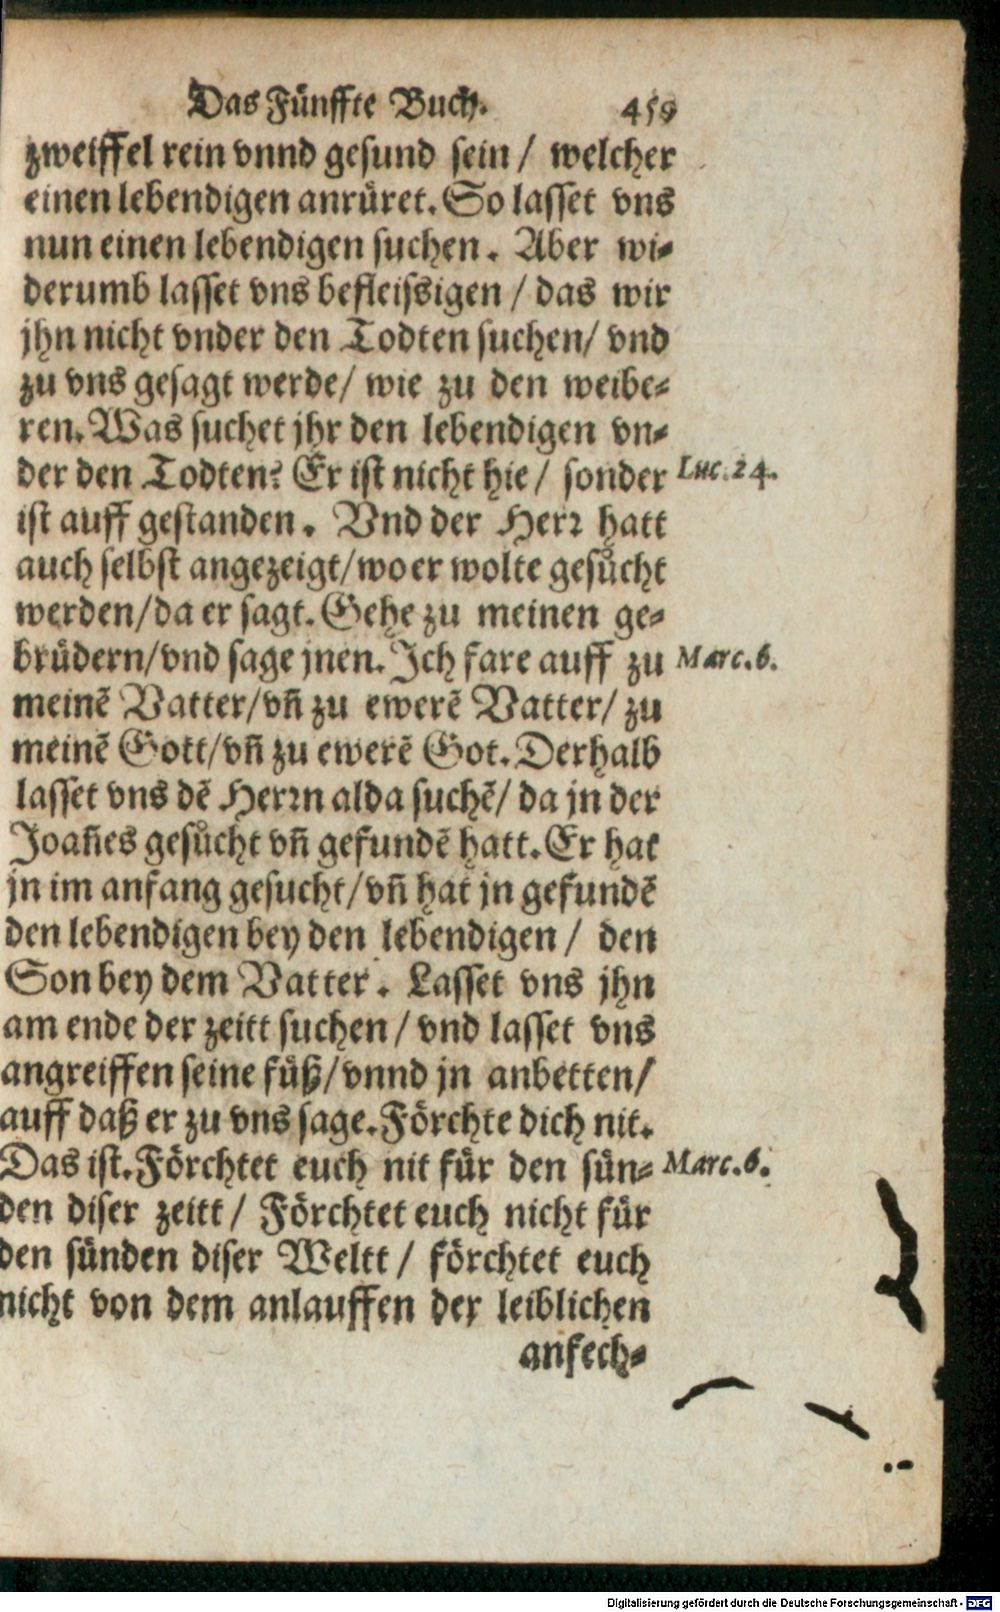 Das Fünffte Buch. 459
zweiffel rein vnnd gesund sein / welcher
einen lebendigen anrüret. So lasset vns
nun einen lebendigen suchen. Aber wi-
derumb lasset vns befleissigen / das wir
jhn nicht vnder den Todten suchen / vnd
zu vns gesagt werde / wie zu den weibe-
ren. Was suchet jhr den lebendigen vn-
der den Todten? Er ist nicht hie / sonder Luc. 24.
ist auff gestanden. Vnd der Herr hatt
auch selbst angezeigt / wo er wolte gesůcht
werden / da er sagt. Gehe zu meinen ge-
brüdern / vnd sage jnen. Ich fare auff zu Marc. 6.
meinē Vatter / vñ zu ewerē Vatter / zu
meinē Gott / vñ zu ewerē Got. Derhalb
lasset vns dē Herrn alda suchē / da jn der
Joañes gesůcht vñ gefundē hatt. Er hat
jn im anfang gesucht / vñ hat jn gefundē
den lebendigen bey den lebendigen / den
Son bey dem Vatter. Lasset vns jhn
am ende der zeitt suchen / vnd lasset vns
angreiffen seine füß / vnnd jn anbetten /
auff daß er zu vns sage. Förchte dich nit.
Das ist. Förchtet euch nit für den sün- Marc. 6.
den diser zeitt / Förchtet euch nicht für
den sünden diser Weltt / förchtet euch
nicht von dem anlauffen der leiblichen
anfech-
Digitalisierung gefördert durch die Deutsche Forschungsgemeinschaft - DFG